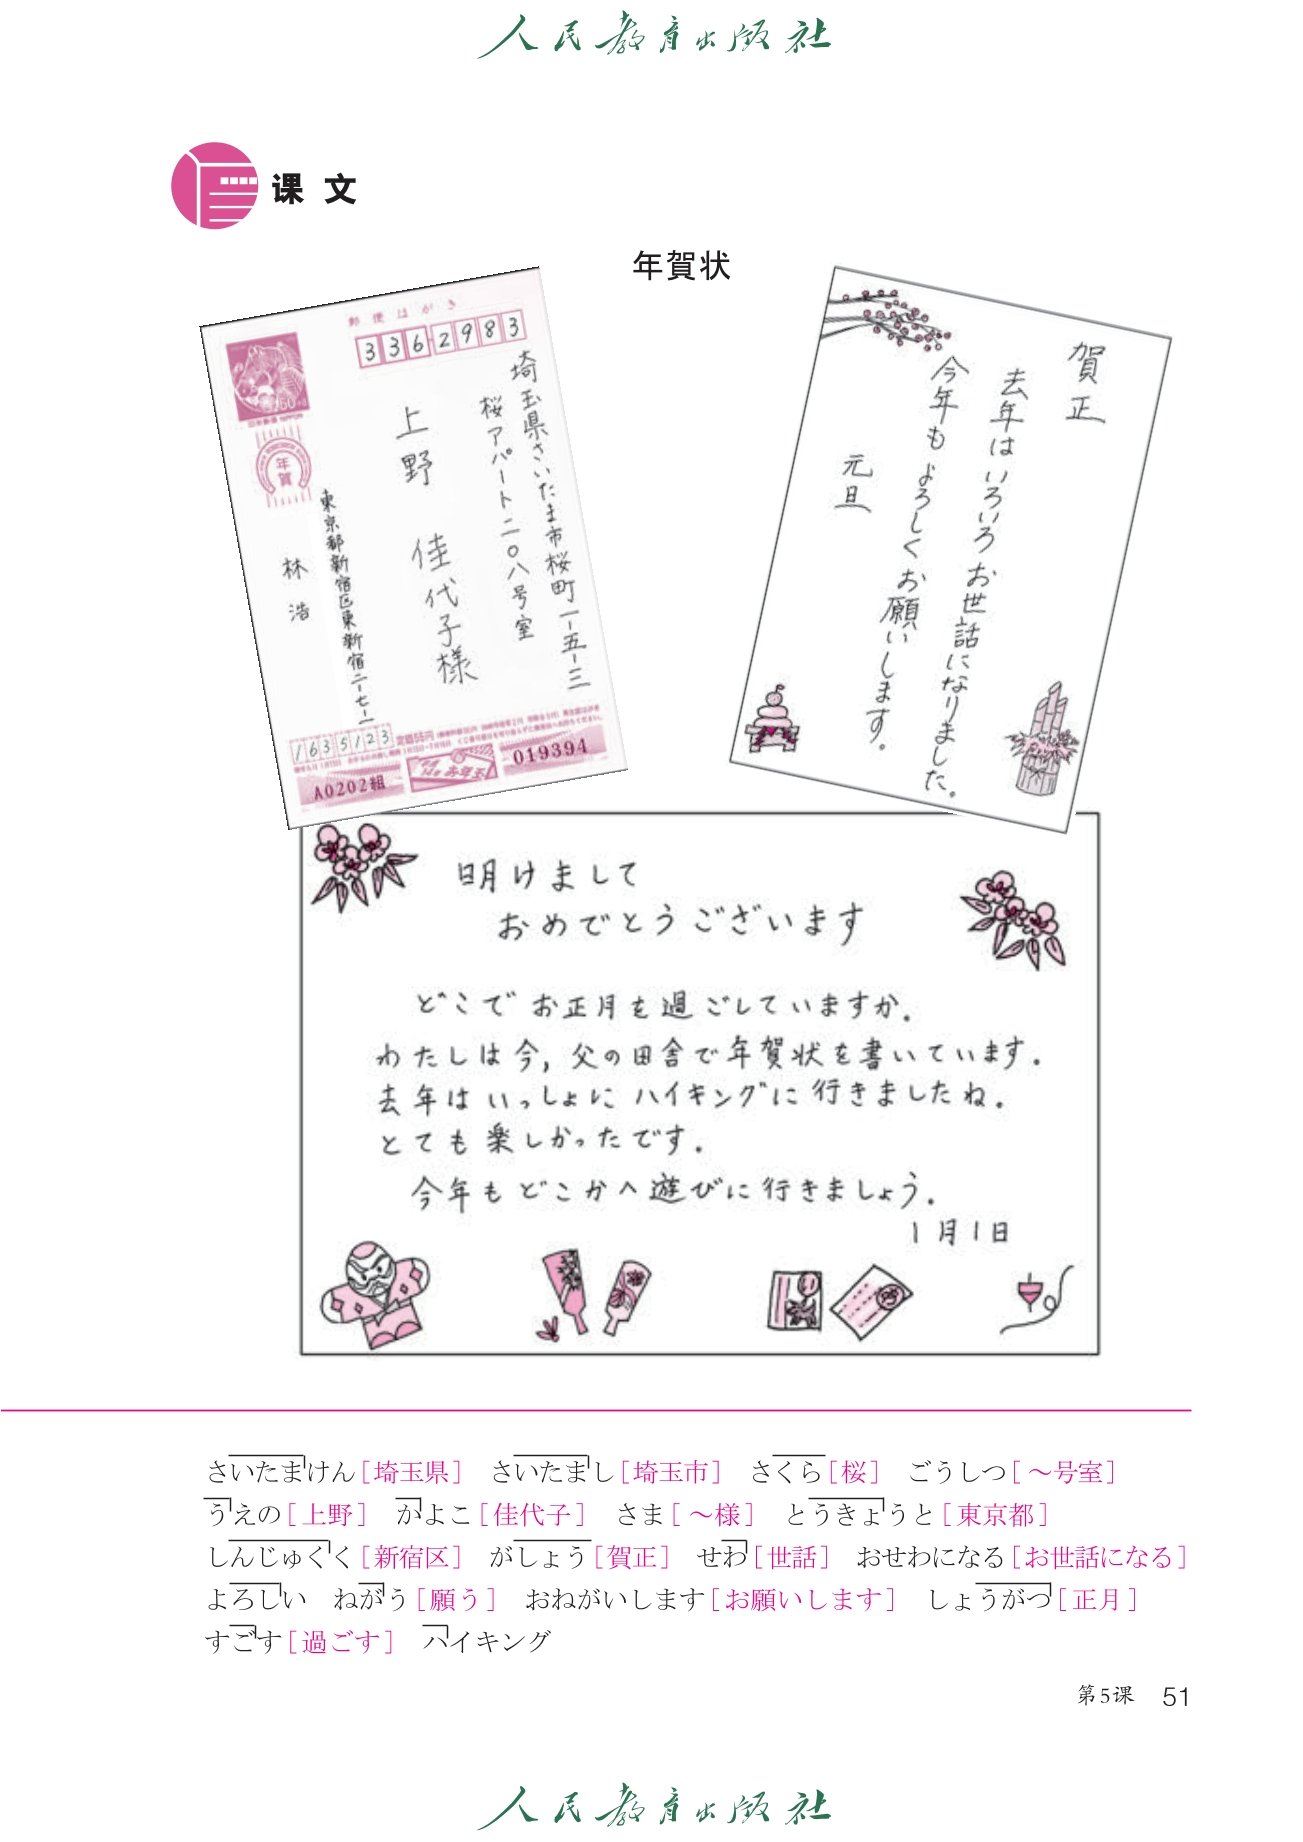 人民教育出版社
课文
年賀状
郵便はがき
3362983
埼玉県さいたま市桜町一-五-三
桜アパート二〇八号室
上野 佳代子様
年賀
東京都新宿区東新宿二-七-一
林 浩
1635123
お年玉
A0202組
019394
賀正
去年はいろいろお世話になりました。
今年もよろしくお願いします。
元旦
明けまして
おめでとうございます
どこでお正月を過ごしていますか。
わたしは今，父の田舎で年賀状を書いています。
去年はいっしょにハイキングに行きましたね。
とても楽しかったです。
今年もどこかへ遊びに行きましょう。
1月1日
さいたまけん［埼玉県］ さいたまし［埼玉市］ さくら［桜］ ごうしつ［～号室］
うえの［上野］ かよこ［佳代子］ さま［～様］ とうきょうと［東京都］
しんじゅくく［新宿区］ がしょう［賀正］ せわ［世話］ おせわになる［お世話になる］
よろしい ねがう［願う］ おねがいします［お願いします］ しょうがつ［正月］
すごす［過ごす］ ハイキング
第5课 51
人民教育出版社